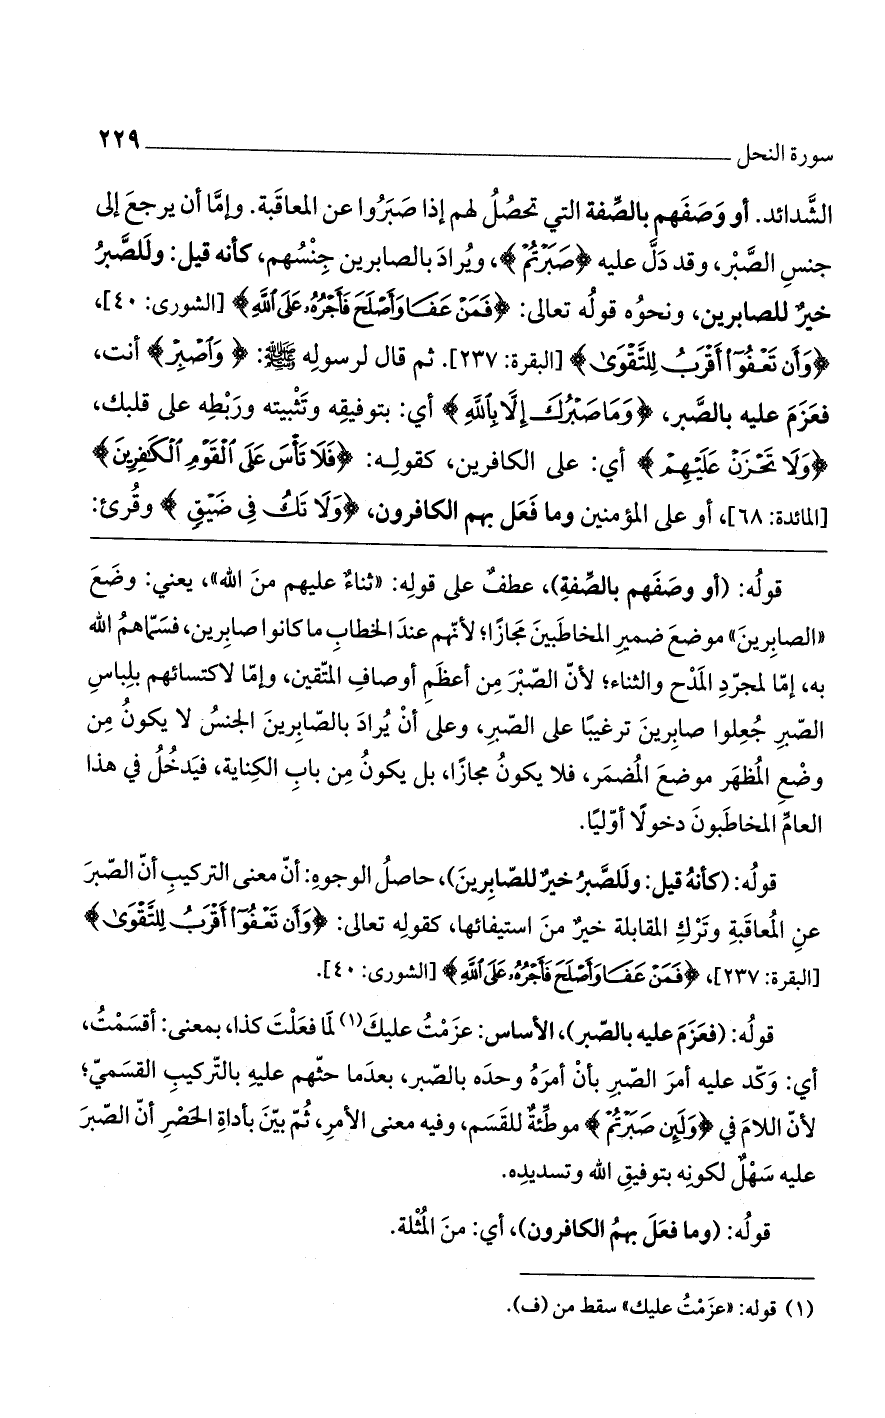 سورة النحل ٢٢٩
الشَّدائد. أو وَصَفَهم بالصِّفة التي تحصُلُ لهم إذا صَبَرُوا عن المعاقَبة. وإمَّا أن يرجعَ إلى
جنسِ الصَّبْر، وقد دَلَّ عليه ﴿صَبَرْتُمْ﴾، ويُرادَ بالصابرين جِنْسُهم، كأنه قيل: ولَلصَّبرُ
خيرٌ للصابرين، ونحوُه قولُه تعالى: ﴿فَمَنْ عَفَا وَأَصْلَحَ فَأَجْرُهُۥ عَلَى ٱللَّهِ﴾ [الشورى: ٤٠]،
﴿وَأَن تَعْفُوٓا۟ أَقْرَبُ لِلتَّقْوَىٰ﴾ [البقرة: ٢٣٧]. ثم قال لرسولِه ﷺ: ﴿وَٱصْبِرْ﴾ أنت،
فعَزَمَ عليه بالصَّبر، ﴿وَمَا صَبْرُكَ إِلَّا بِٱللَّهِ﴾ أي: بتوفيقِه وتَثْبيته ورَبْطِه على قلبك،
﴿وَلَا تَحْزَنْ عَلَيْهِمْ﴾ أي: على الكافرين، كقولِه: ﴿فَلَا تَأْسَ عَلَى ٱلْقَوْمِ ٱلْكَٰفِرِينَ﴾
[المائدة: ٦٨]، أو على المؤمنين وما فَعَل بهم الكافرون، ﴿وَلَا تَكُ فِى ضَيْقٍ﴾ وقُرئ:
قولُه: (أو وصَفَهم بالصِّفةِ)، عطفٌ على قولِه: «ثناءٌ عليهم منَ الله»، يعني: وضَعَ
«الصابرينَ» موضعَ ضميرِ المخاطَبينَ مَجازًا؛ لأنّهم عندَ الخطابِ ما كانوا صابرين، فسَمّاهمُ الله
به، إمّا لمجرّدِ المَدْح والثناء؛ لأنّ الصّبْرَ مِن أعظَمِ أوصافِ المتّقين، وإمّا لاكتسائهم بلِباسِ
الصّبرِ جُعِلوا صابرينَ ترغيبًا على الصّبرِ، وعلى أنْ يُرادَ بالصّابرينَ الجنسُ لا يكونُ مِن
وضْعِ المُظهَر موضعَ المُضمَر، فلا يكونُ مجازًا، بل يكونُ مِن بابِ الكِناية، فيَدخُلُ في هذا
العامِّ المخاطَبونَ دخولًا أوّليًا.
قولُه: (كأنهُ قيل: ولَلصَّبرُ خيرٌ للصّابِرينَ)، حاصلُ الوجوهِ: أنّ معنى التركيبِ أنّ الصّبرَ
عنِ المُعاقَبةِ وتَرْكِ المقابلة خيرٌ منَ استيفائها، كقولِه تعالى: ﴿وَأَن تَعْفُوٓا۟ أَقْرَبُ لِلتَّقْوَىٰ﴾
[البقرة: ٢٣٧]، ﴿فَمَنْ عَفَا وَأَصْلَحَ فَأَجْرُهُۥ عَلَى ٱللَّهِ﴾ [الشورى: ٤٠].
قولُه: (فعَزَمَ عليه بالصّبر)، الأساس: عزَمْتُ عليكَ(١) لَمَا فعَلْتَ كذا، بمعنى: أقسَمْتُ،
أي: وَكّد عليه أمرَ الصّبرِ بأنْ أمرَهُ وحدَه بالصّبر، بعدَما حثّهم عليهِ بالتّركيبِ القسَميّ؛
لأنّ اللامَ في ﴿وَلَئِن صَبَرْتُمْ﴾ موطِّئةٌ للقَسَم، وفيه معنى الأمرِ، ثُمّ بيّنَ بأداةِ الحَصْرِ أنّ الصّبرَ
عليه سَهْلٌ لكونِه بتوفيقِ الله وتسديدِه.
قولُه: (وما فعَلَ بهمُ الكافرون)، أي: منَ المُثْلة.
(١) قوله: «عزَمْتُ عليك» سقط من (ف).